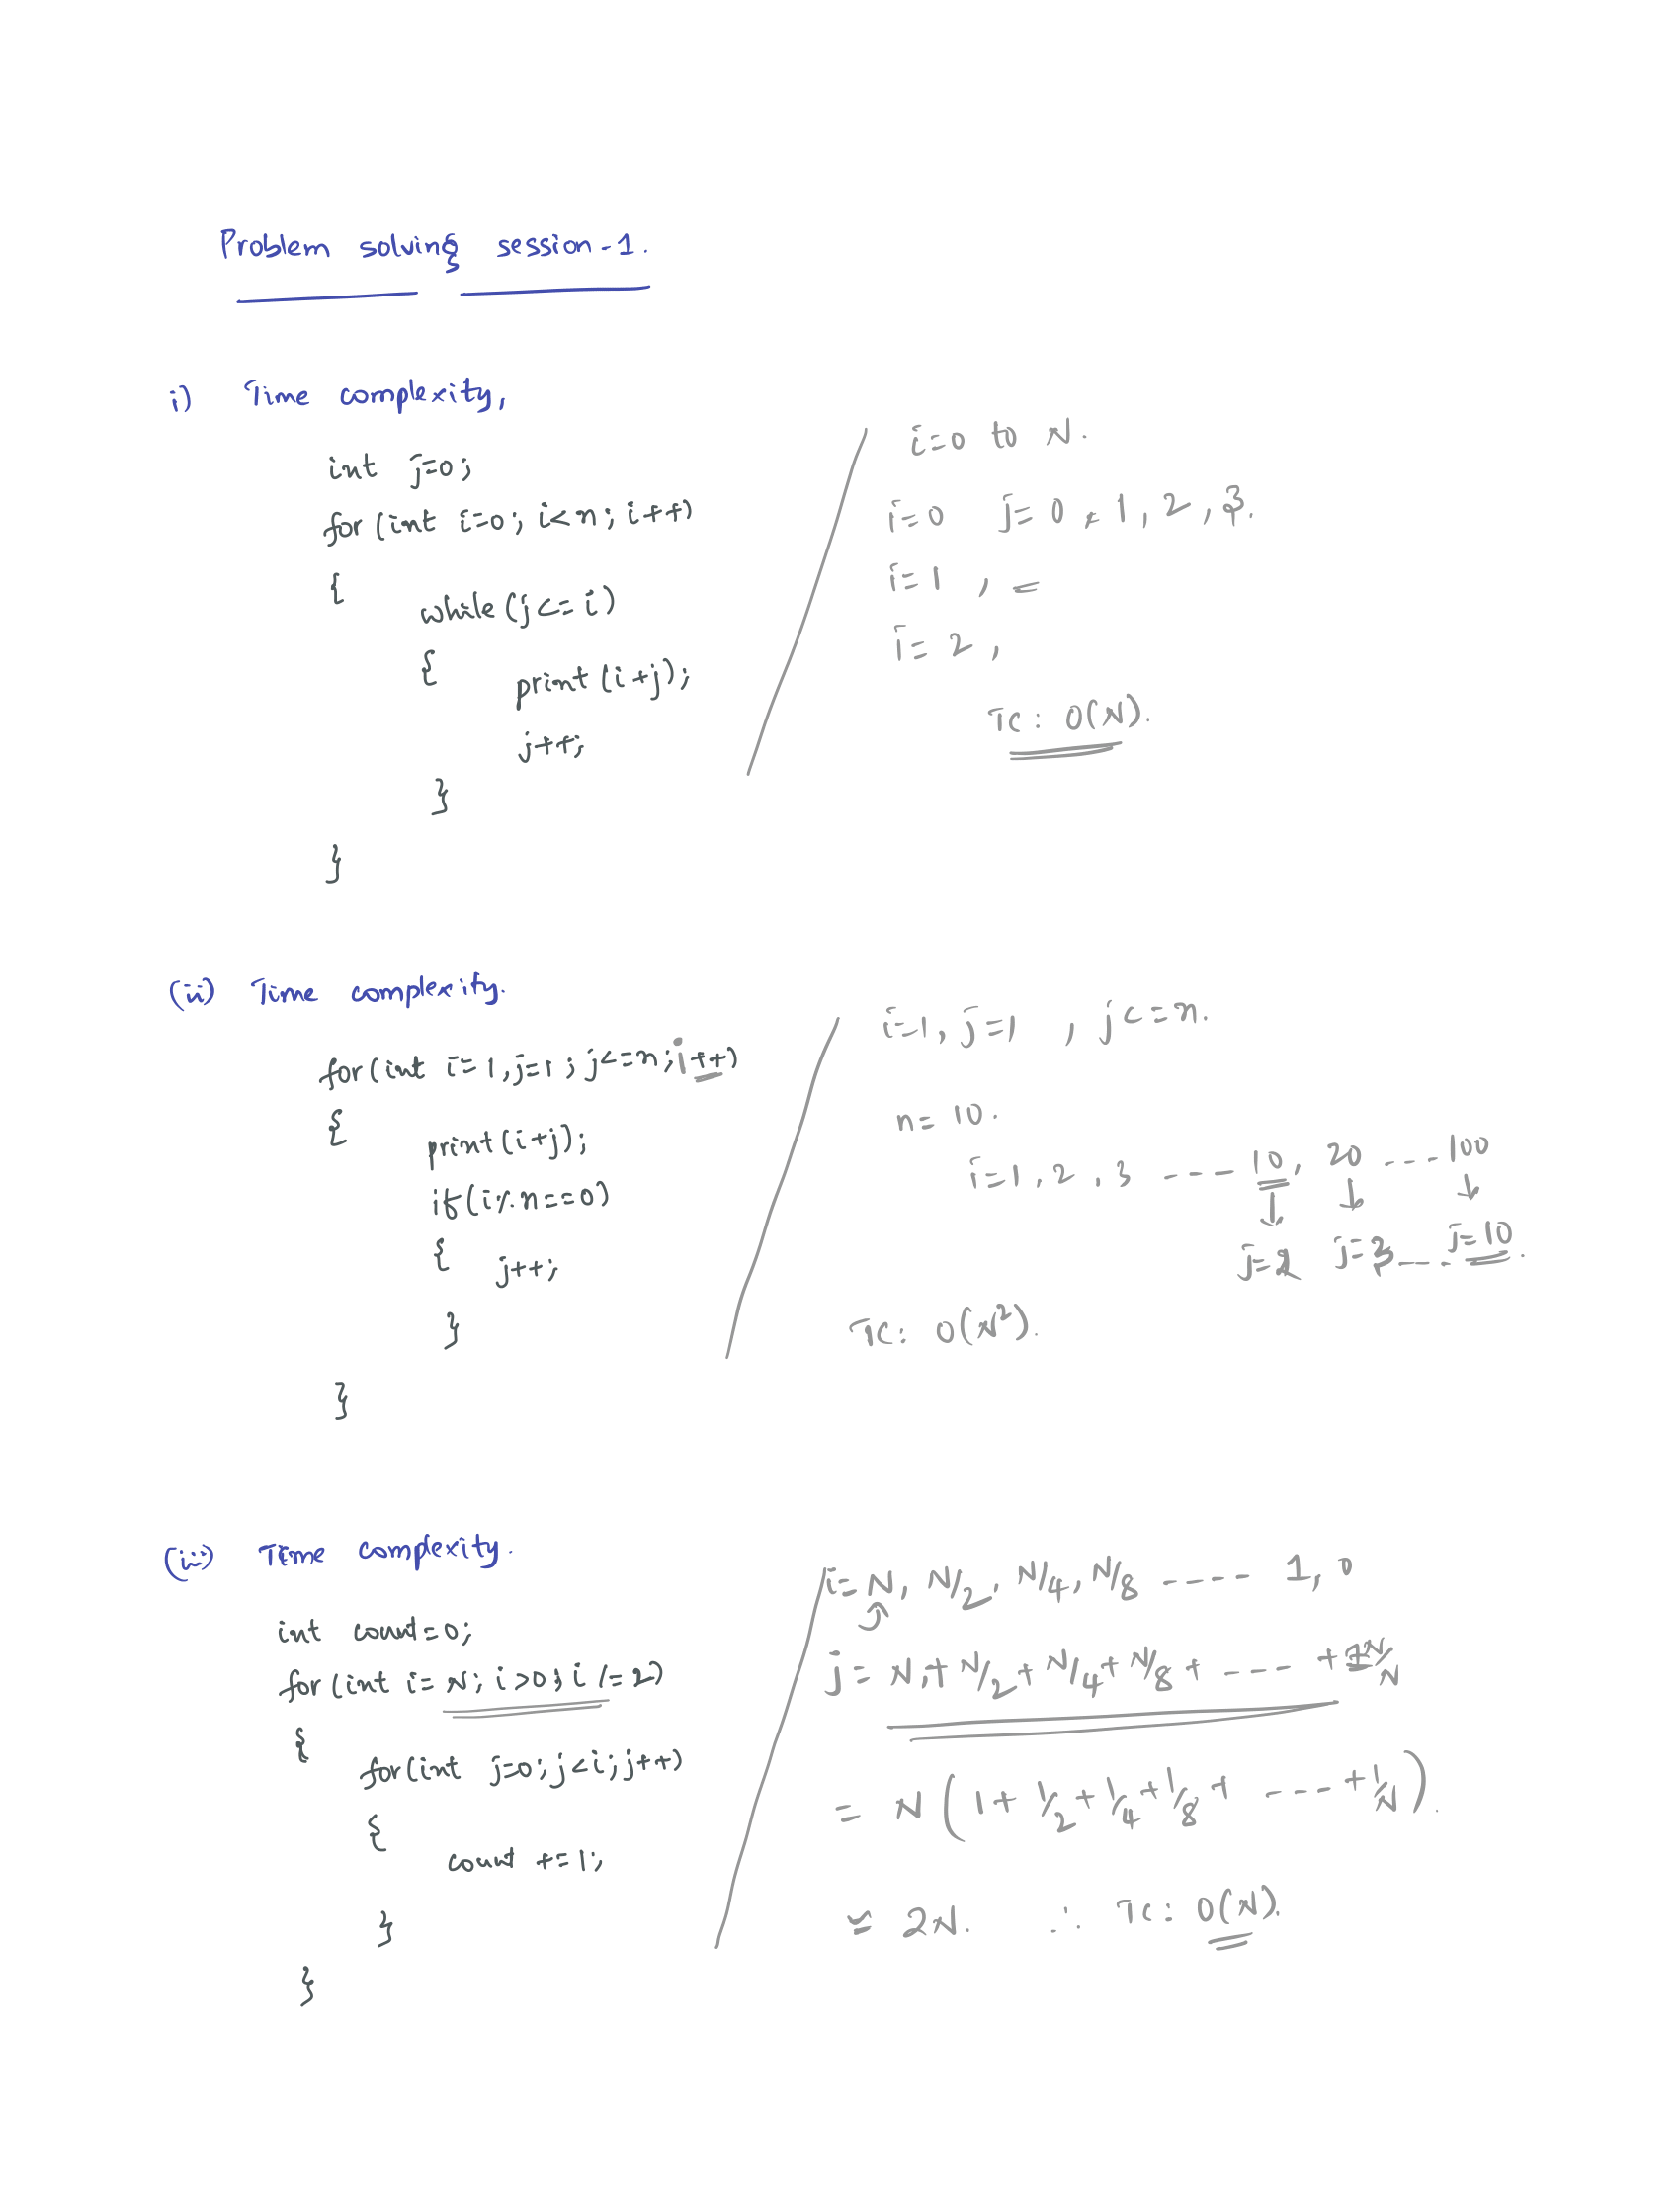 Problem solving session-1.
i) Time complexity,
int j=0;
for(int i=0; i<n; i++)
{
while(j<=i)
{
print(i+j);
j++;
}
}
i=0 to N.
i=0 j=0, 1, 2, 3.
i=1, =
i=2,
TC: O(N).
(ii) Time complexity.
for(int i=1,j=1; j<=n; i++)
{
print(i+j);
if(i%n==0)
{
j++;
}
}
i=1, j=1, j<=n.
n=10.
i=1,2,3 ---- 10, 20 ---- 100
j=2 j=3 ---- j=10.
TC: O(N²).
(iii) Time complexity.
int count=0;
for(int i=N; i>0; i/=2)
{
for(int j=0; j<i; j++)
{
count+=1;
}
}
i=N, N/2, N/4, N/8 ---- 1, 0
j= N+N/2+N/4+N/8+ ---- +N/N
= N(1+1/2+1/4+1/8+ ---- +1/N).
≃ 2N. ∴ TC: O(N).